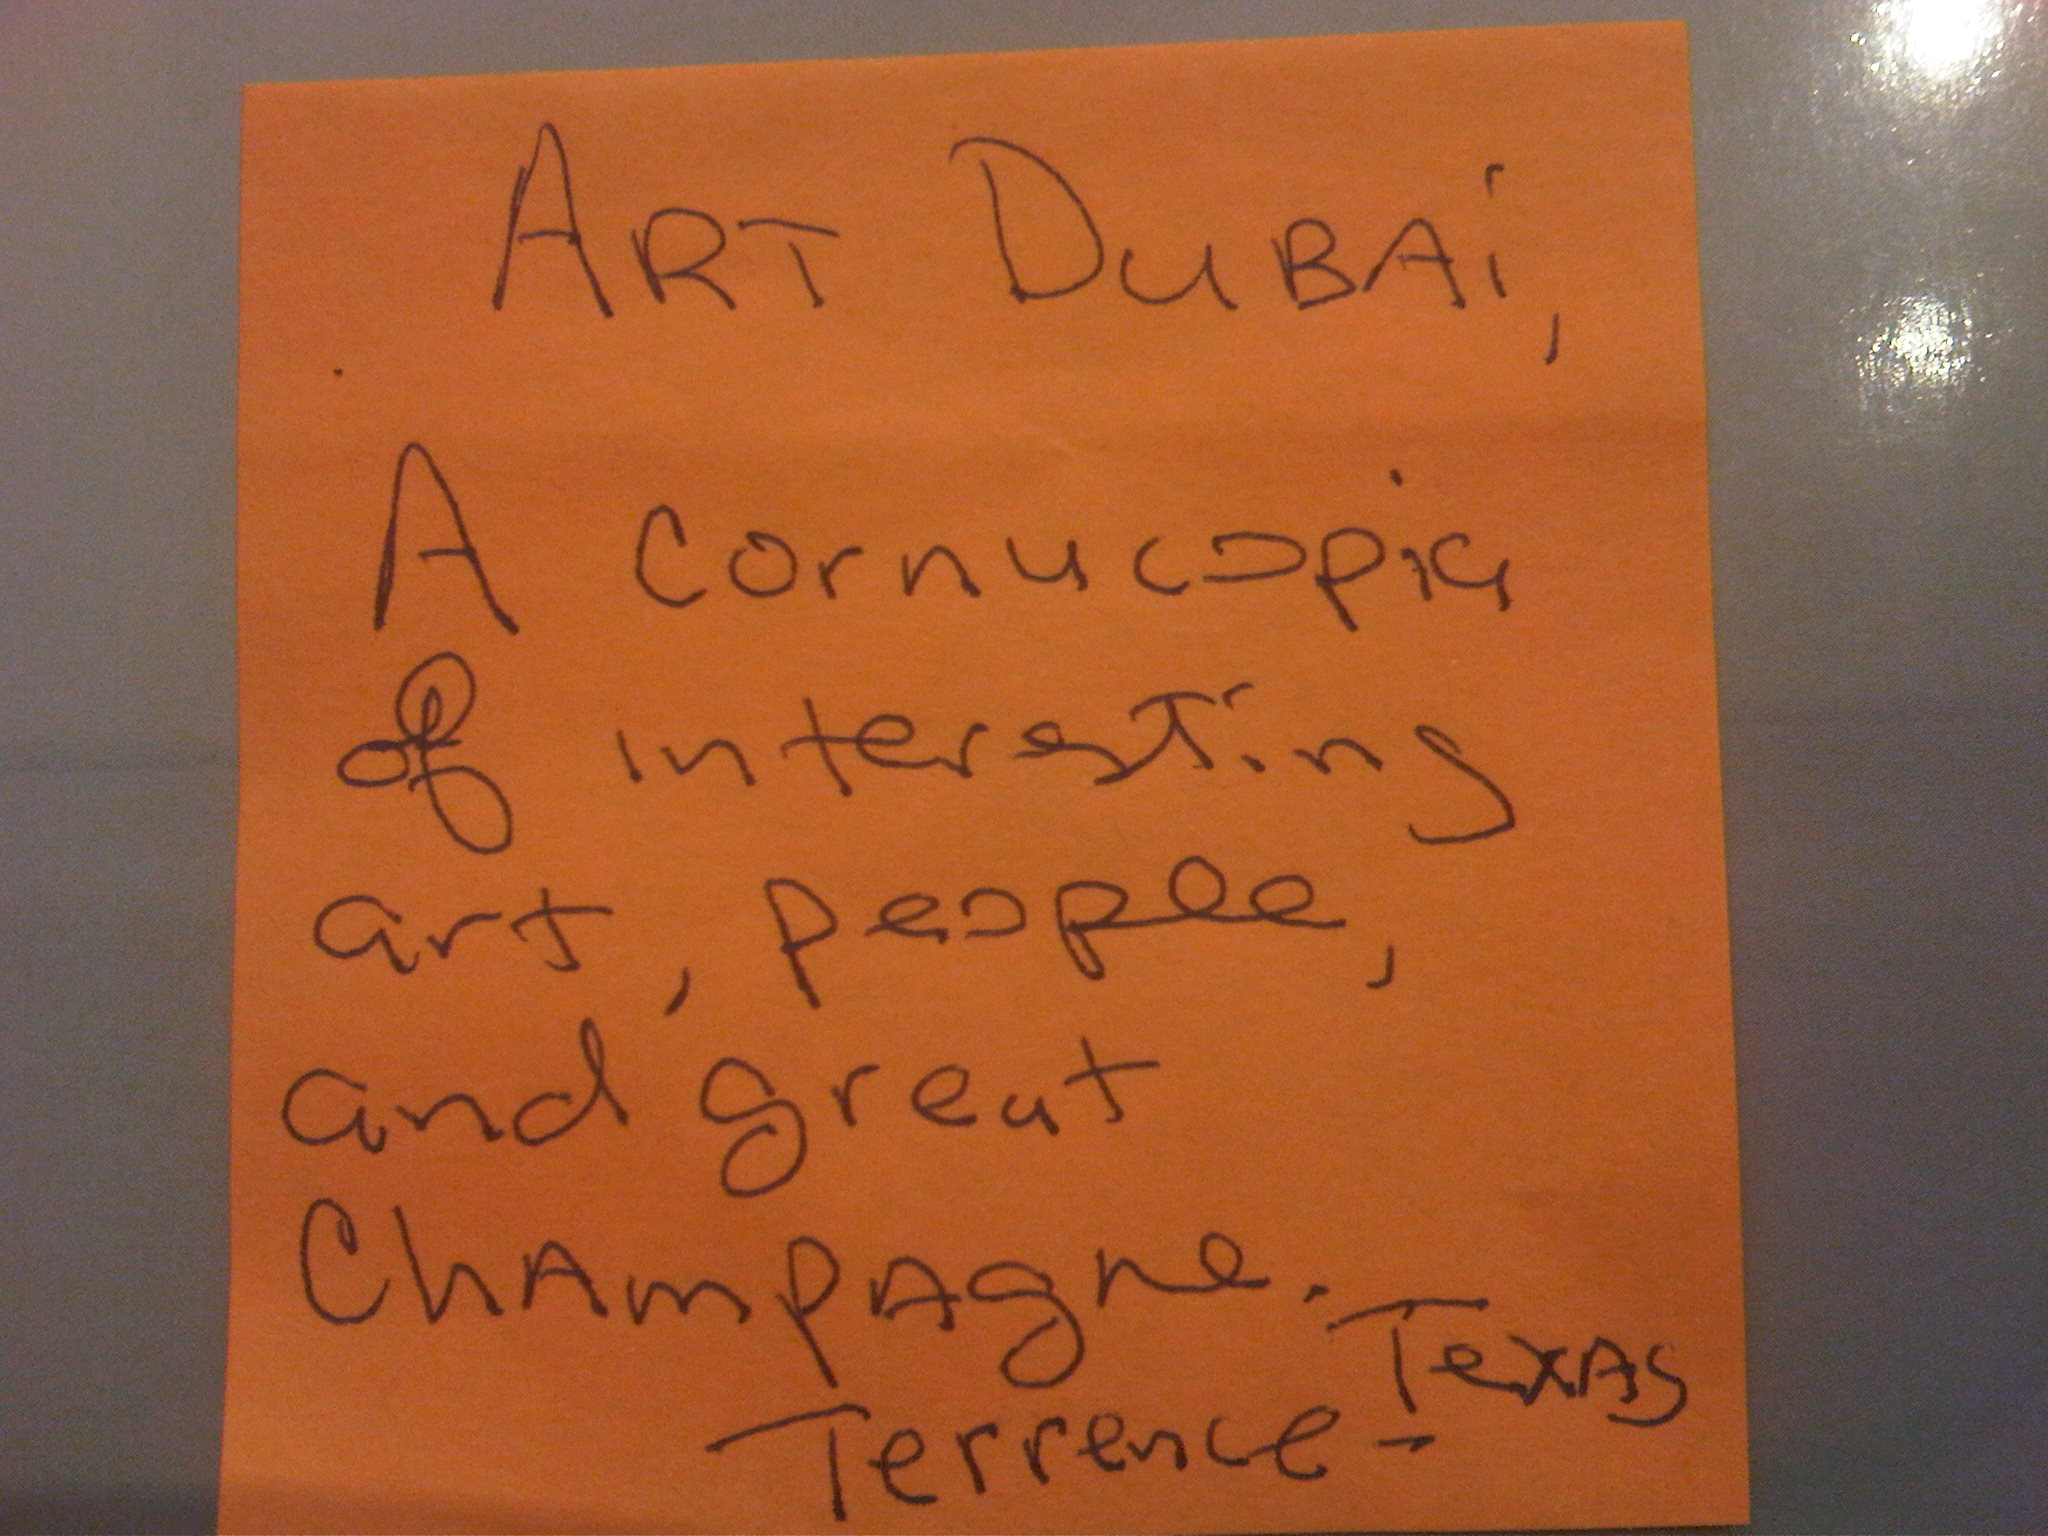 ART DUBAi,
A cornucopia
of interesting
art, people,
and great
ChAmpAgne.
Terrence - TexAs